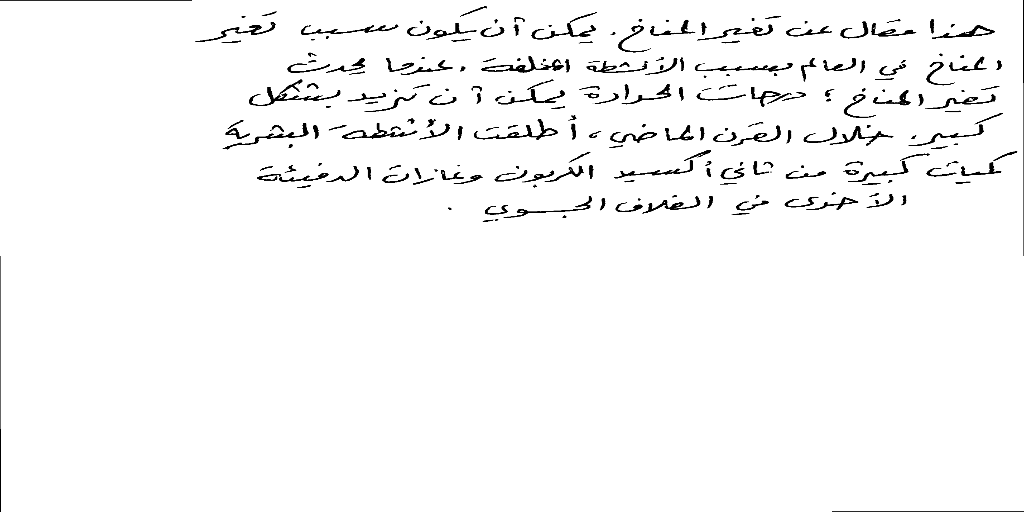 هذا مقال عن تغير المناخ. يمكن أن يكون سبب تغير
المناخ في العالم بسبب الأنشطة المختلفة. عندما يحدث
تغير المناخ؛ درجات الحرارة يمكن أن تزيد بشكل
كبير. خلال القرن الماضي، أطلقت الأنشطة البشرية
كميات كبيرة من ثاني أكسيد الكربون وغازات الدفيئة
الأخرى في الغلاف الجوي.